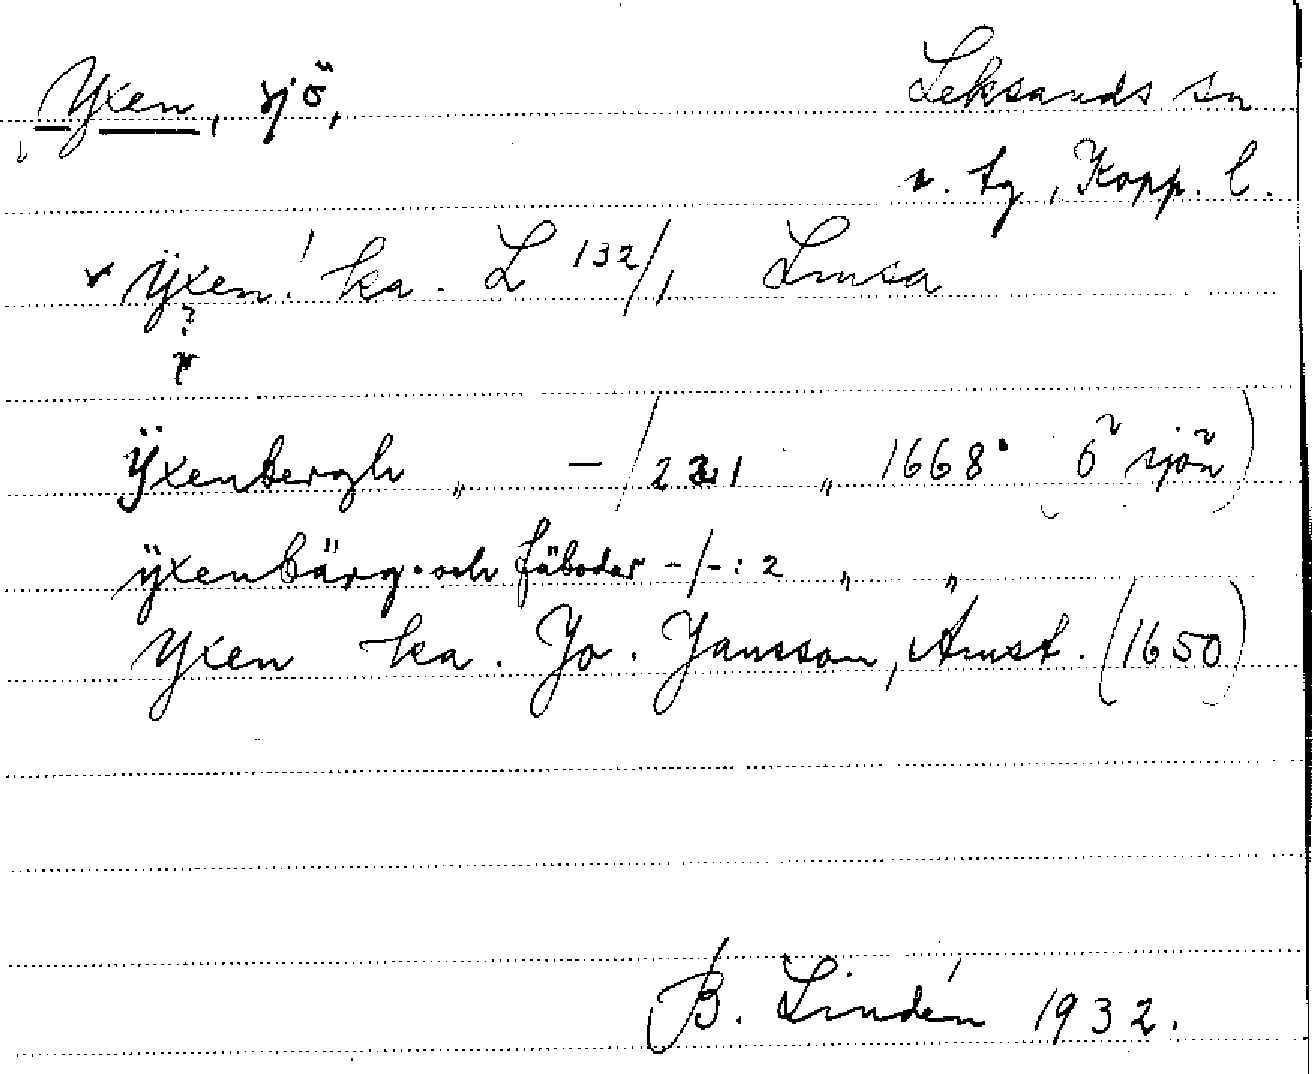 Yxen, sjö, Leksands sn
s. tg, Kopp. l.
v ÿxen! ka. L 132/1 Lmsa
?
ÿxenbergh „ – / 221 „ 1668 (ö sjön)
ÿxenbärg och fäbodar -/-: 2 „ „
Yxen ka. Jo. Jansson, Amst. (1650)
B. Lindén 1932.